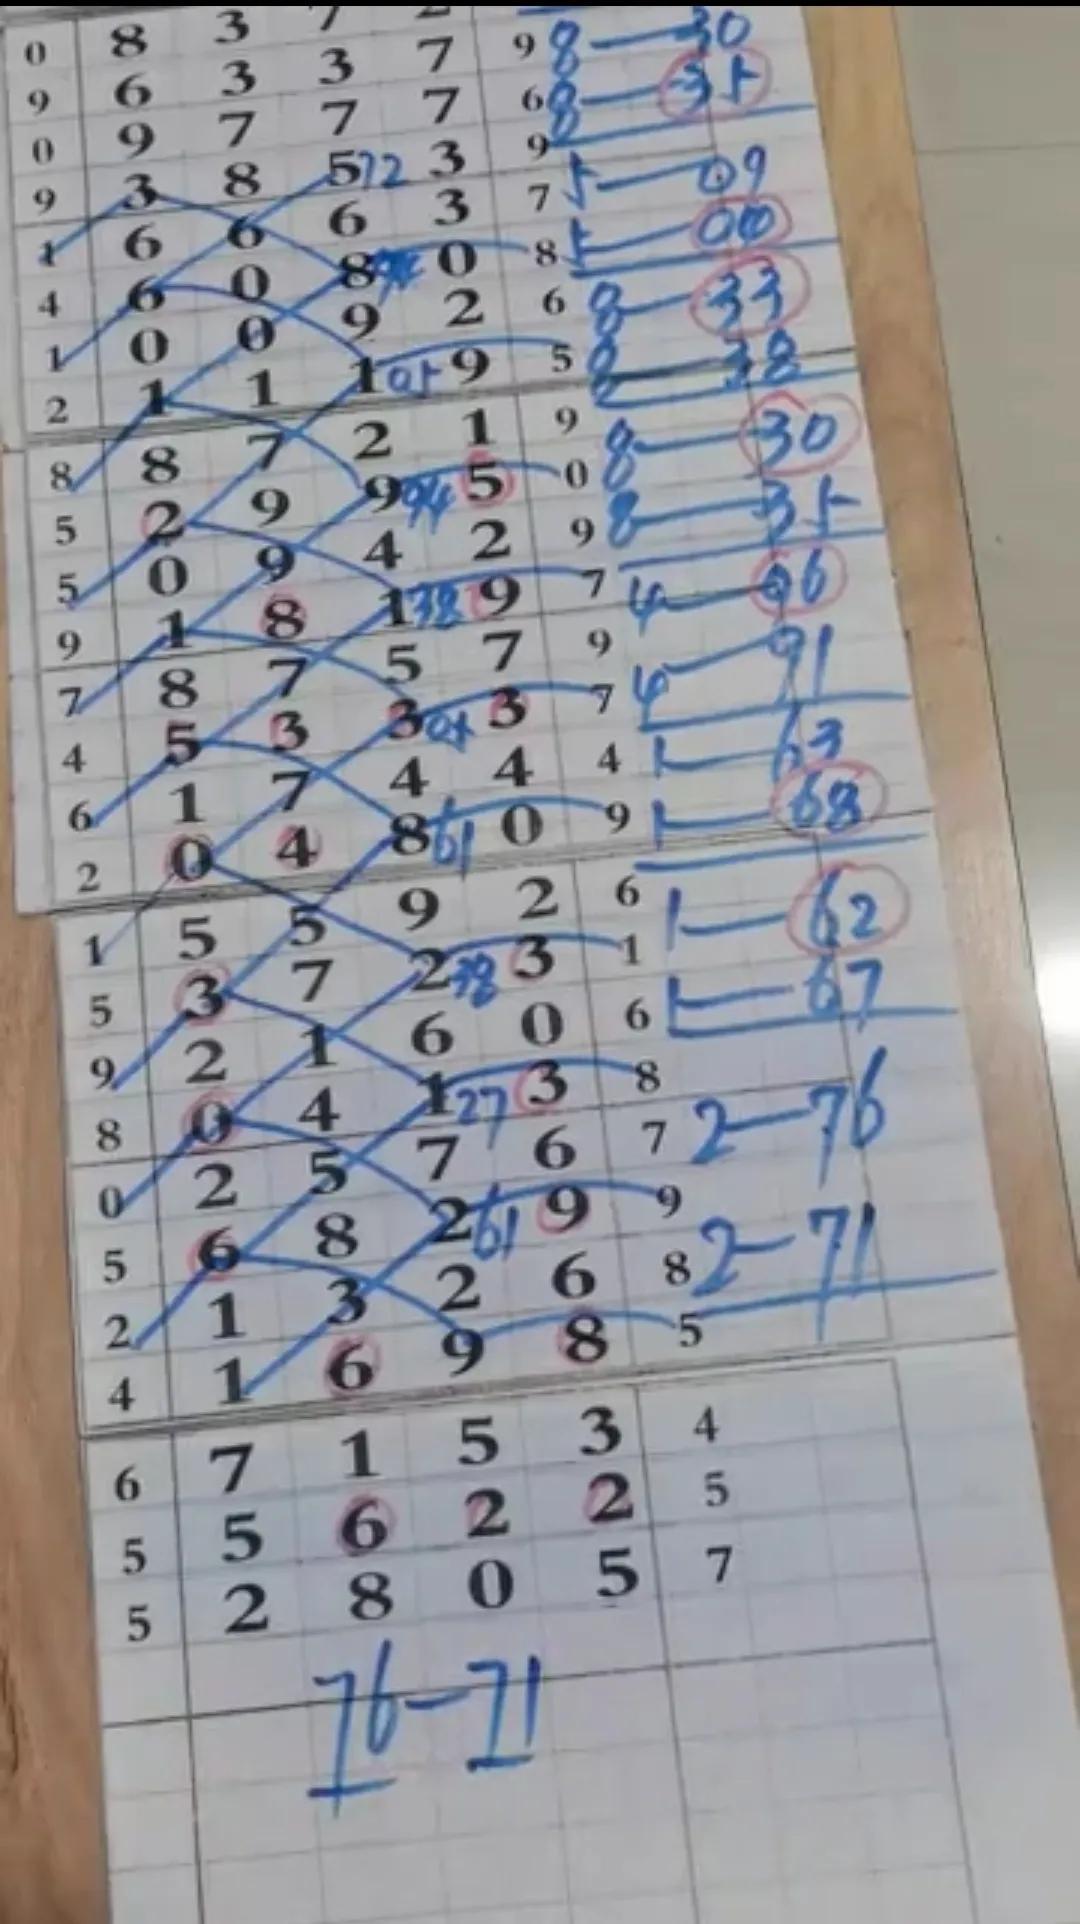 0 8 3 7
9 6 3 3 7 9 8—30
0 9 7 7 7 6 8—35
9 3 8 5 72 3 9
1 6 6 6 3 7 5—09
4 6 0 8 0 8 5—
1 0 0 9 2 6 8—33
2 1 1 1 05 9 5 8—38
8 8 7 2 1 9 8—30
5 2 9 9 94 5 0 8—35
5 0 9 4 2 9
9 1 8 1 38 9 7 4—96
7 8 7 5 7 9 4—91
4 5 3 3 05 3 7
6 1 7 4 4 4 1—63
2 0 4 8 61 0 9 1—68
1 5 5 9 2 6 1—62
5 3 7 2 38 3 1
9 2 1 6 0 6 1—67
8 0 4 1 27 3 8
0 2 5 7 6 7 2—76
5 6 8 2 61 9 9
2 1 3 2 6 8 2—71
4 1 6 9 8 5
6 7 1 5 3 4
5 5 6 2 2 5
5 2 8 0 5 7
76—71